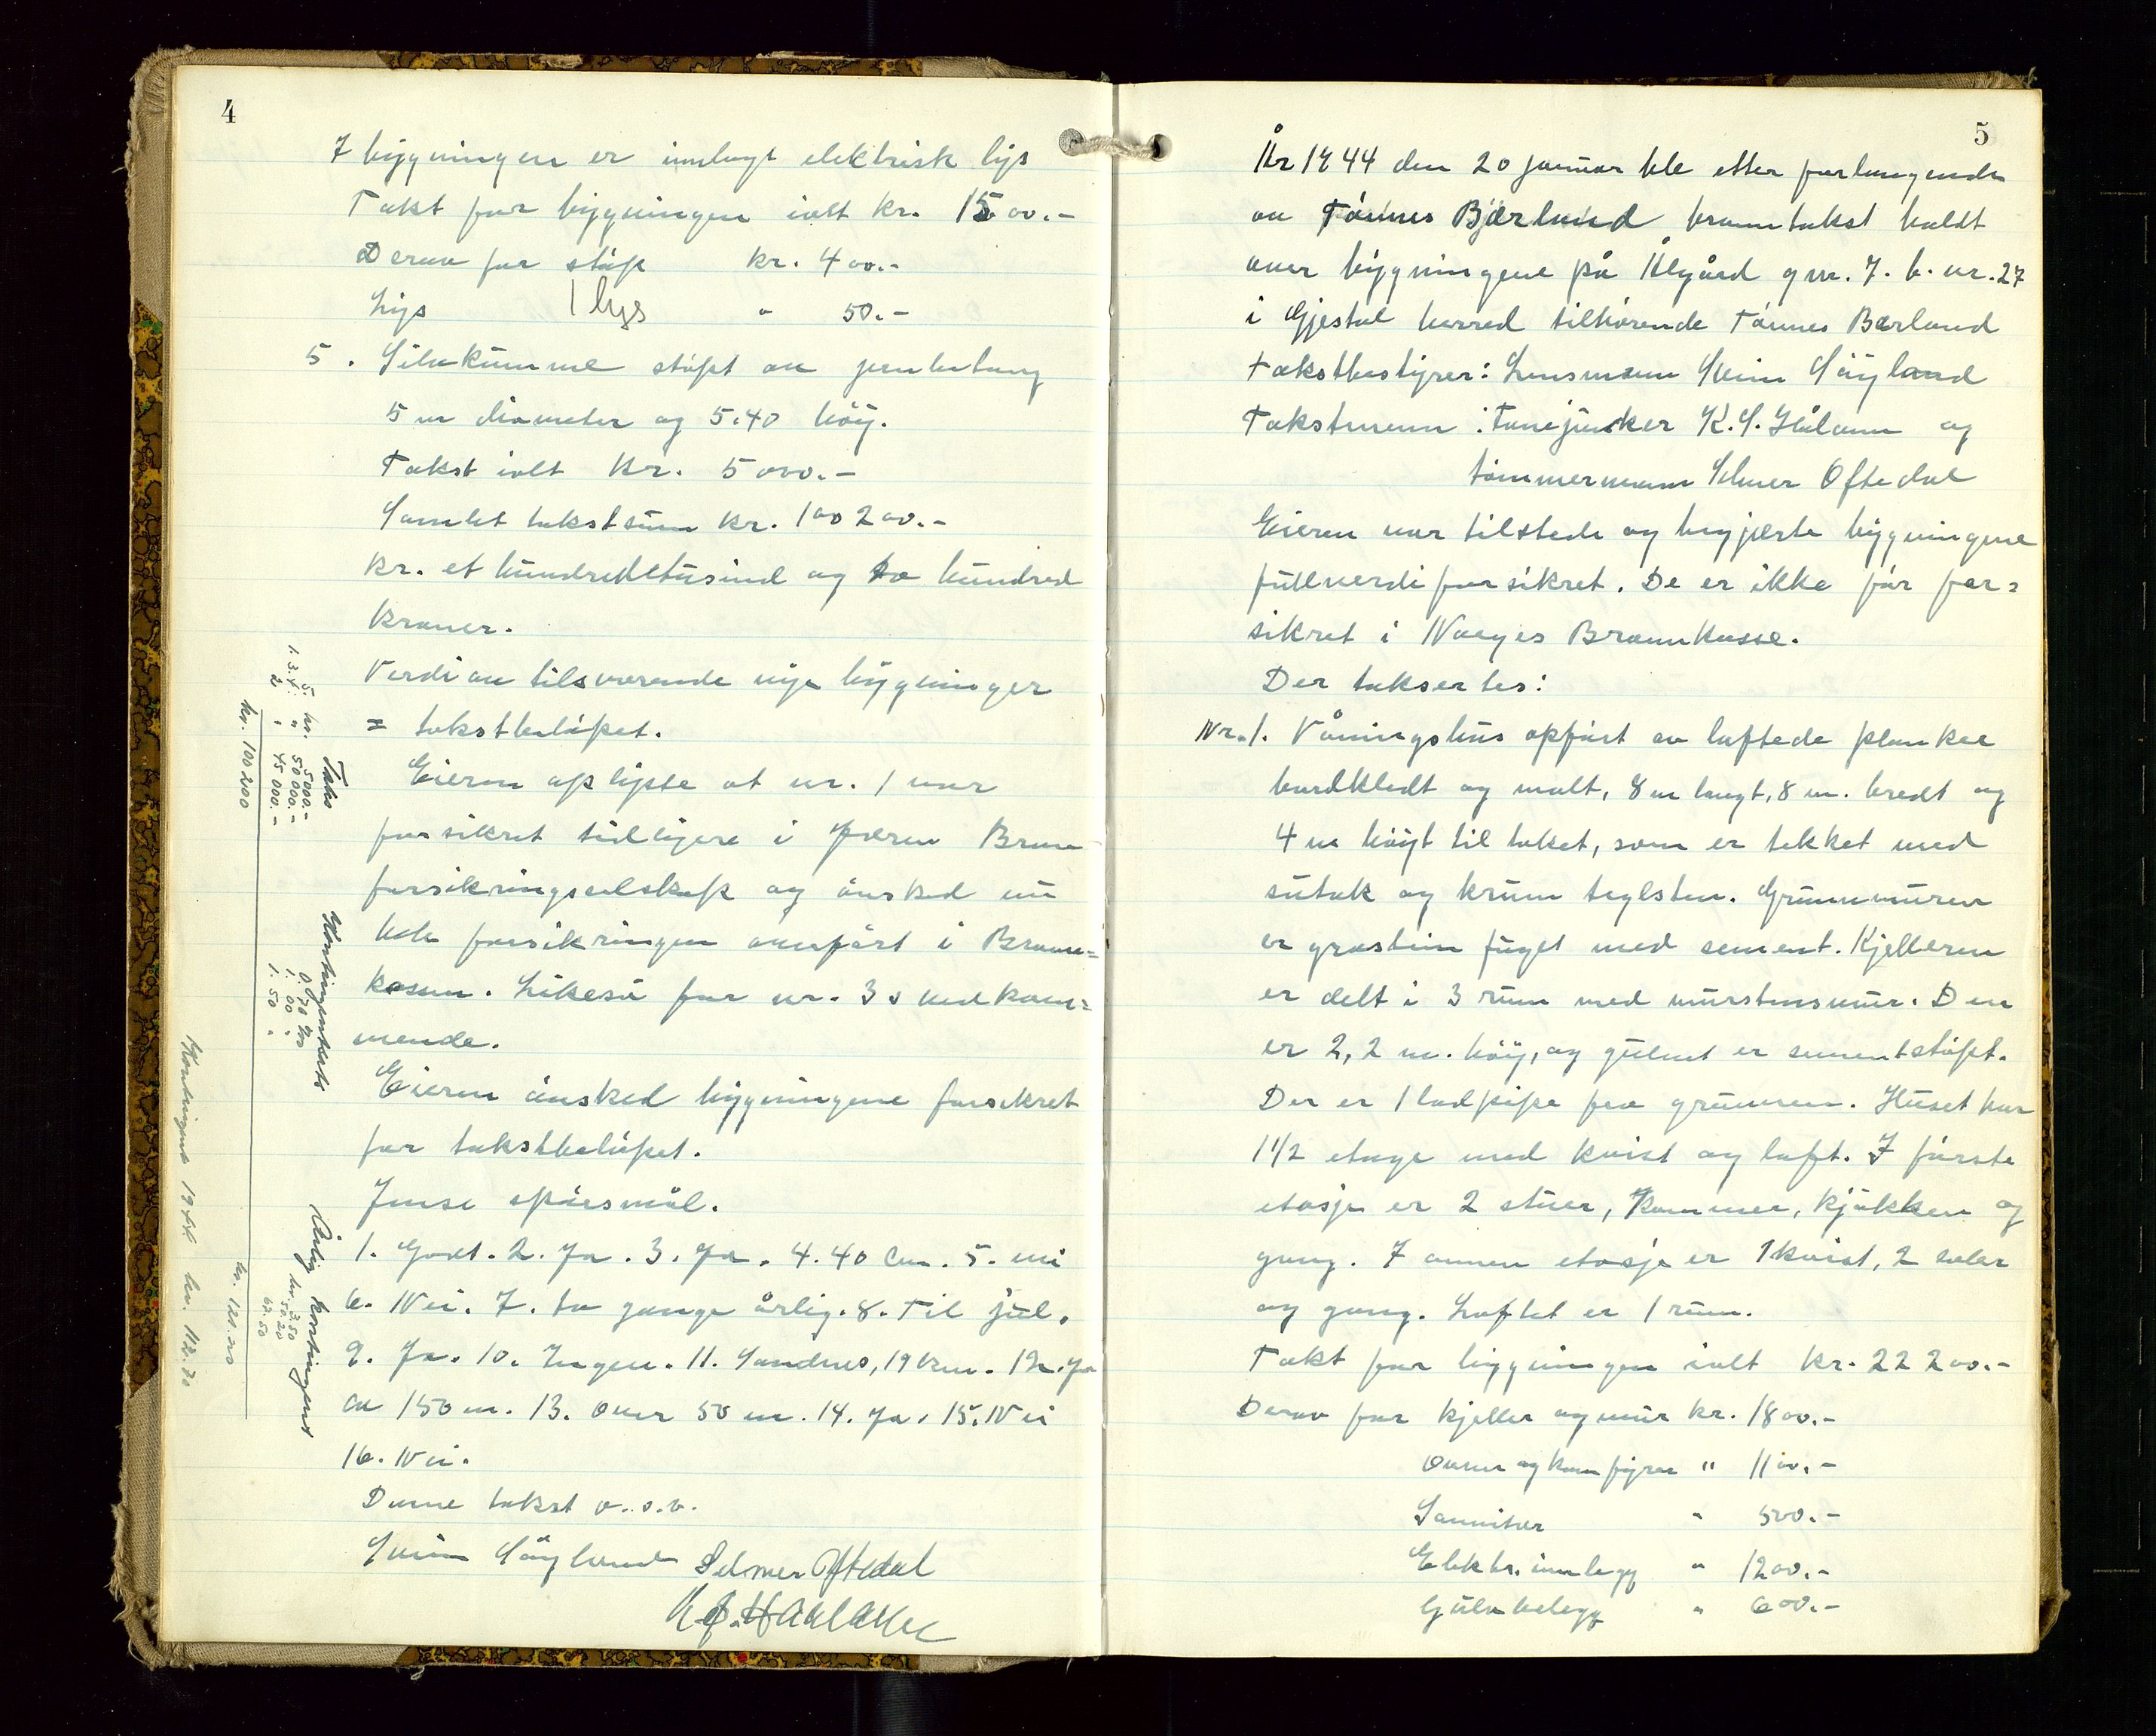 4
I bygningen er innlagt elektrisk lys
Takt for bygningen ialt kr. 1500.-
Derav for støp kr. 400.-
Lys 1 lys " 50.-
5. Silokumme støpt av jernbetong
5 m diameter og 5.40 høy.
Takst ialt kr. 5000.-
Samlet takstsum kr. 100200.-
kr. et hundredetusind og to hundred
kroner.
Verdi av tilsvarende nye bygninger
= takstbeløpet.
Eieren oplyste at nr. 1 var
forsikret tidligere i Jæren Brann
forsikringsselskap og ønsked nu
hele forsikringen overført i Brann=
kassen. Likeså for nr. 3s vedkom=
mende.
Eieren ønsked bygningene forsikret
for takstbeløpet.
Jense spørsmål.
1. Godt. 2. Ja. 3. Ja. 4. 40 cm. 5. nei
6. Nei. 7. to gange årlig. 8. Til jul.
9. Ja. 10. Ingen. 11. Sandnes, 19 km. 12. Ja
ca 150 m. 13. Over 50 m. 14. Ja. 15. Nei
16. Nei.
Denne takst o.s.v.
Svein Søyland Selmer Oftedal
Takst
5. kr. 5000.-
1.3.4. " 50 000.-
2 " 45 000.-
kr. 100 200
Kontingentsats
0.70
1.00 "
1.50 "
Årlig kontingent
kr. 3.50
50.20
67.50
Kontingent 1944 kr. 112.70
5
År 1944 den 20 januar ble etter forlangende
av Tønnes Bjærland branntakst holdt
over bygningene på Ålgård gnr. 7. b. nr. 27
i Gjestal herred tilhørende Tønnes Bærland
Takstbestyrer: Lensmann Svein Søyland
Takstmenn: K. S. Hålann og
tømmermann Selmer Oftedal
Eieren var tilstede og begjærte bygningene
fullverdiforsikret. De er ikke før for=
sikret i Norges Brannkasse.
Der taksertes:
Nr. 1. Våningshus opført av laftede planker
bordkledt og malt, 8 m langt, 8 m. bredt og
4 m høyt til taket, som er tekket med
sutak og krum teglsten. Grunnmuren
er gråstein fuget med sement. Kjelleren
er delt i 3 rum med murstensmur. Den
er 2,2 m. høy, og gulvet er sementstøpt.
Der er 1 ladpipe fra grunnen. Huset har
1 1/2 etage med kvist og loft. I første
etasje er 2 stuer, kammer, kjøkken og
gang. I annen etasje er 1 kvist, 2 saler
og gang. Loftet er 1 rum.
Takt for bygningen ialt kr. 22 200.-
Derav for kjeller og mur kr. 1800.-
Ovner og komfyrer " 1100.-
Sanniter " 500.-
Elektr. innlegg " 1200.-
Gulvbelegg " 600.-